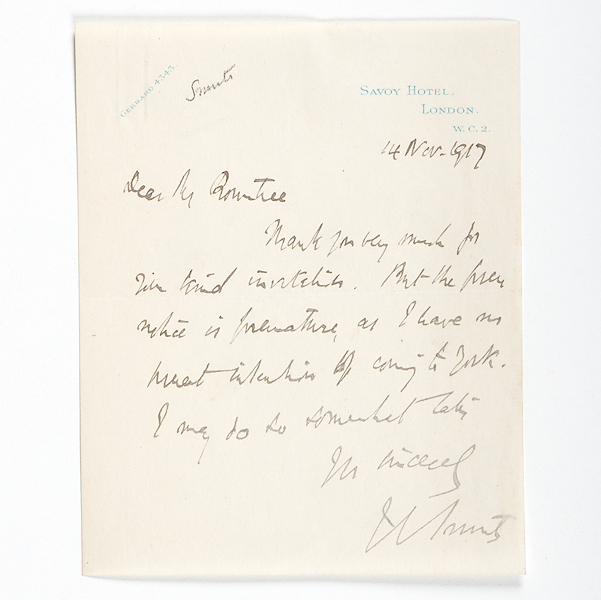 GERRARD 4343.
Smuts
SAVOY HOTEL.
LONDON.
W.C.2.
14 Nov. 1917
Dear Mr Rowntree
Thank you very much for
your kind invitation. But the press
notice is premature, as I have no
present intention of coming to York.
I may do so somewhat later
Yrs sincerely
J C Smuts